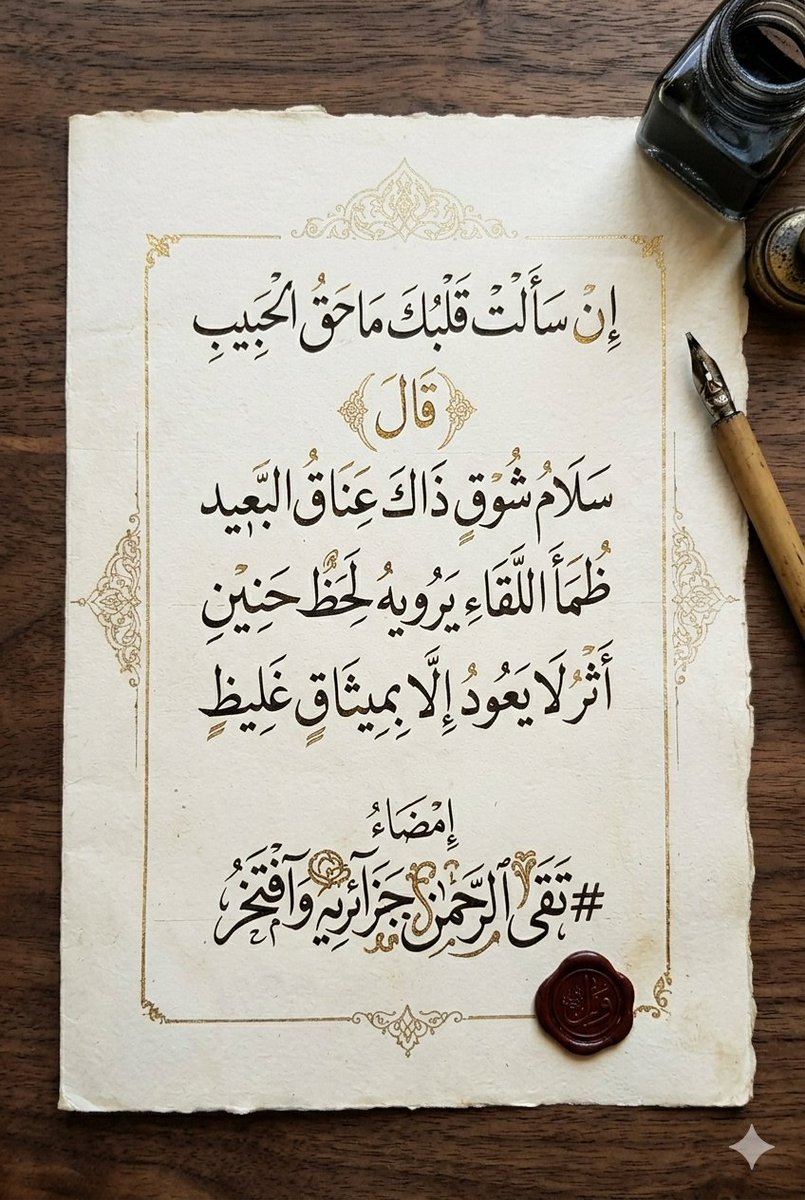 إِنْ سَأَلْتْ قَلْبُكَ مَا حَقُ الْحَبِيبِ
﴿قَالَ﴾
سَلَامُ شُوْقٍ ذَاكَ عِنَاقُ البَّعِيد
ظُمَأَ اللَّقَاءِ يَرُويهُ لِحَظٌ حَنِيْنٍ
أَثْرُ لَا يَعُودُ إِلَّا بِمِيثَاقٍ غَلِيظٍ
إِمْضَاءُ
#تَقَى ٱلرَّحْمٰنِ جَزَآئرِيه وَآفْتَخْرُ